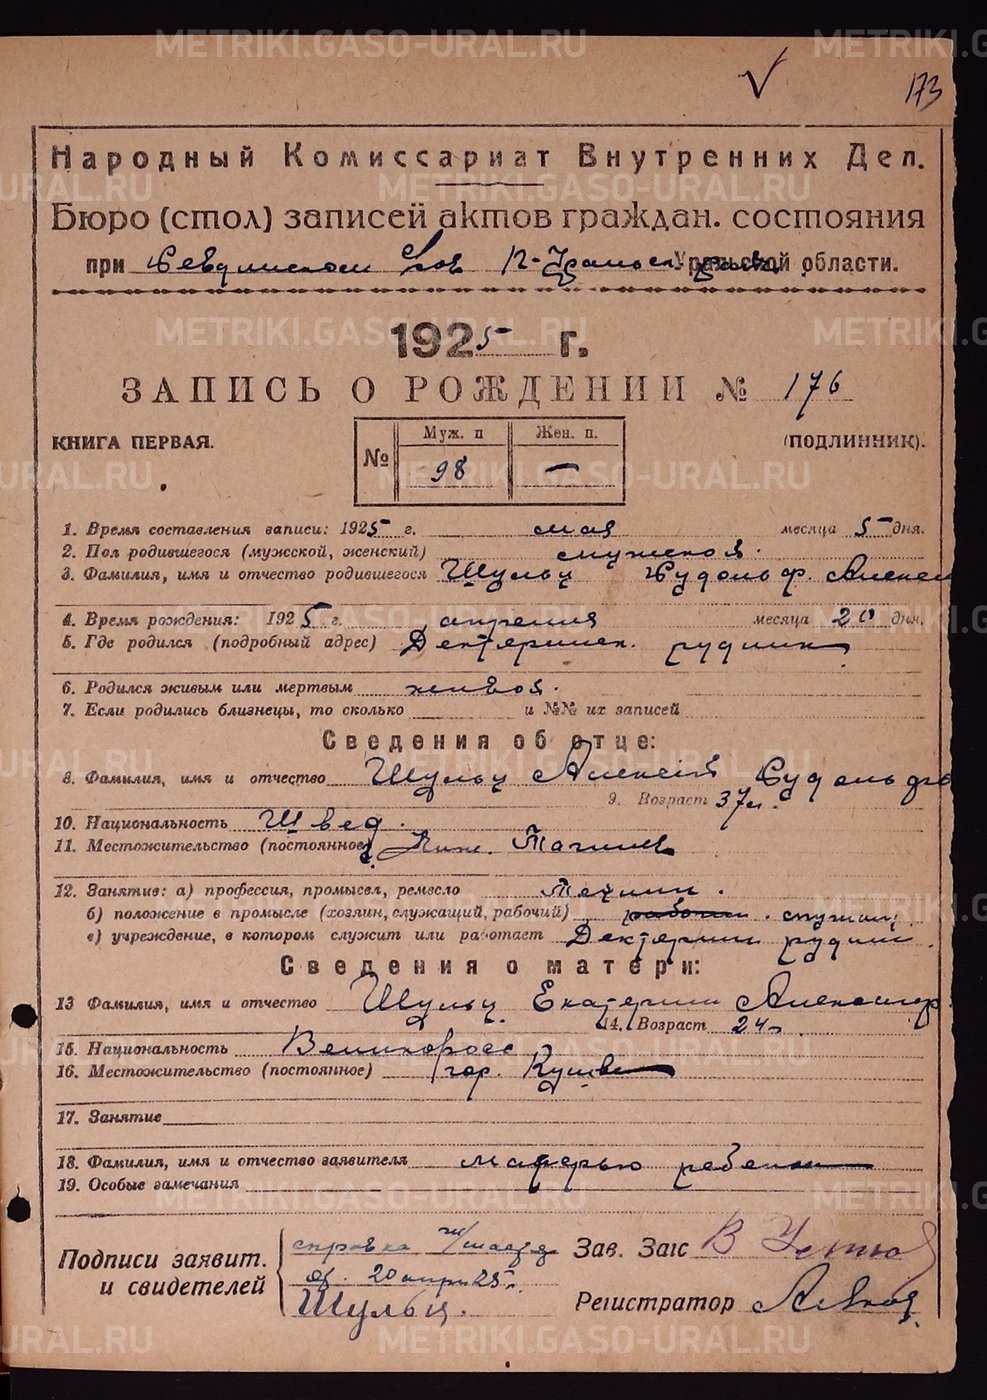 173
Народный Комиссариат Внутренних Дел.
Бюро (стол) записей актов граждан. состояния
при Уральской области.
1925 г.
ЗАПИСЬ О РОЖДЕНИИ № 176
КНИГА ПЕРВАЯ. (ПОДЛИННИК).
№ Муж. п Жен. п.
98 —
1. Время составления записи: 1925 г. мая месяца 5 дня.
2. Пол родившегося (мужской, женский) мужской.
3. Фамилия, имя и отчество родившегося Шульц Рудольф. Алексе
4. Время рождения: 1925 г. апреля месяца 20 дня.
5. Где родился (подробный адрес) Дектяринск. рудник
6. Родился живым или мертвым живой.
7. Если родились близнецы, то сколько и №№ их записей
Сведения об отце:
8. Фамилия, имя и отчество Шульц Алексей Рудольфо
9. Возраст 37 л.
10. Национальность Швед.
11. Местожительство (постоянное) г. Ниж. Тагил
12. Занятие: а) профессия, промысел, ремесло Техник.
б) положение в промысле (хозяин, служащий, рабочий) служащ
в) учреждение, в котором служит или работает рудник.
Сведения о матери:
13 Фамилия, имя и отчество Шульц Екатерина Александр
14. Возраст 24 г.
15. Национальность Великоросс
16. Местожительство (постоянное) гор. Кушва
17. Занятие
18. Фамилия, имя и отчество заявителя матерью ребенка
19. Особые замечания
Подписи заявит. и свидетелей
справка
от. 20 апр 25 г.
Шульц.
Зав. Загс
Регистратор
METRIKI.GASO-URAL.RU